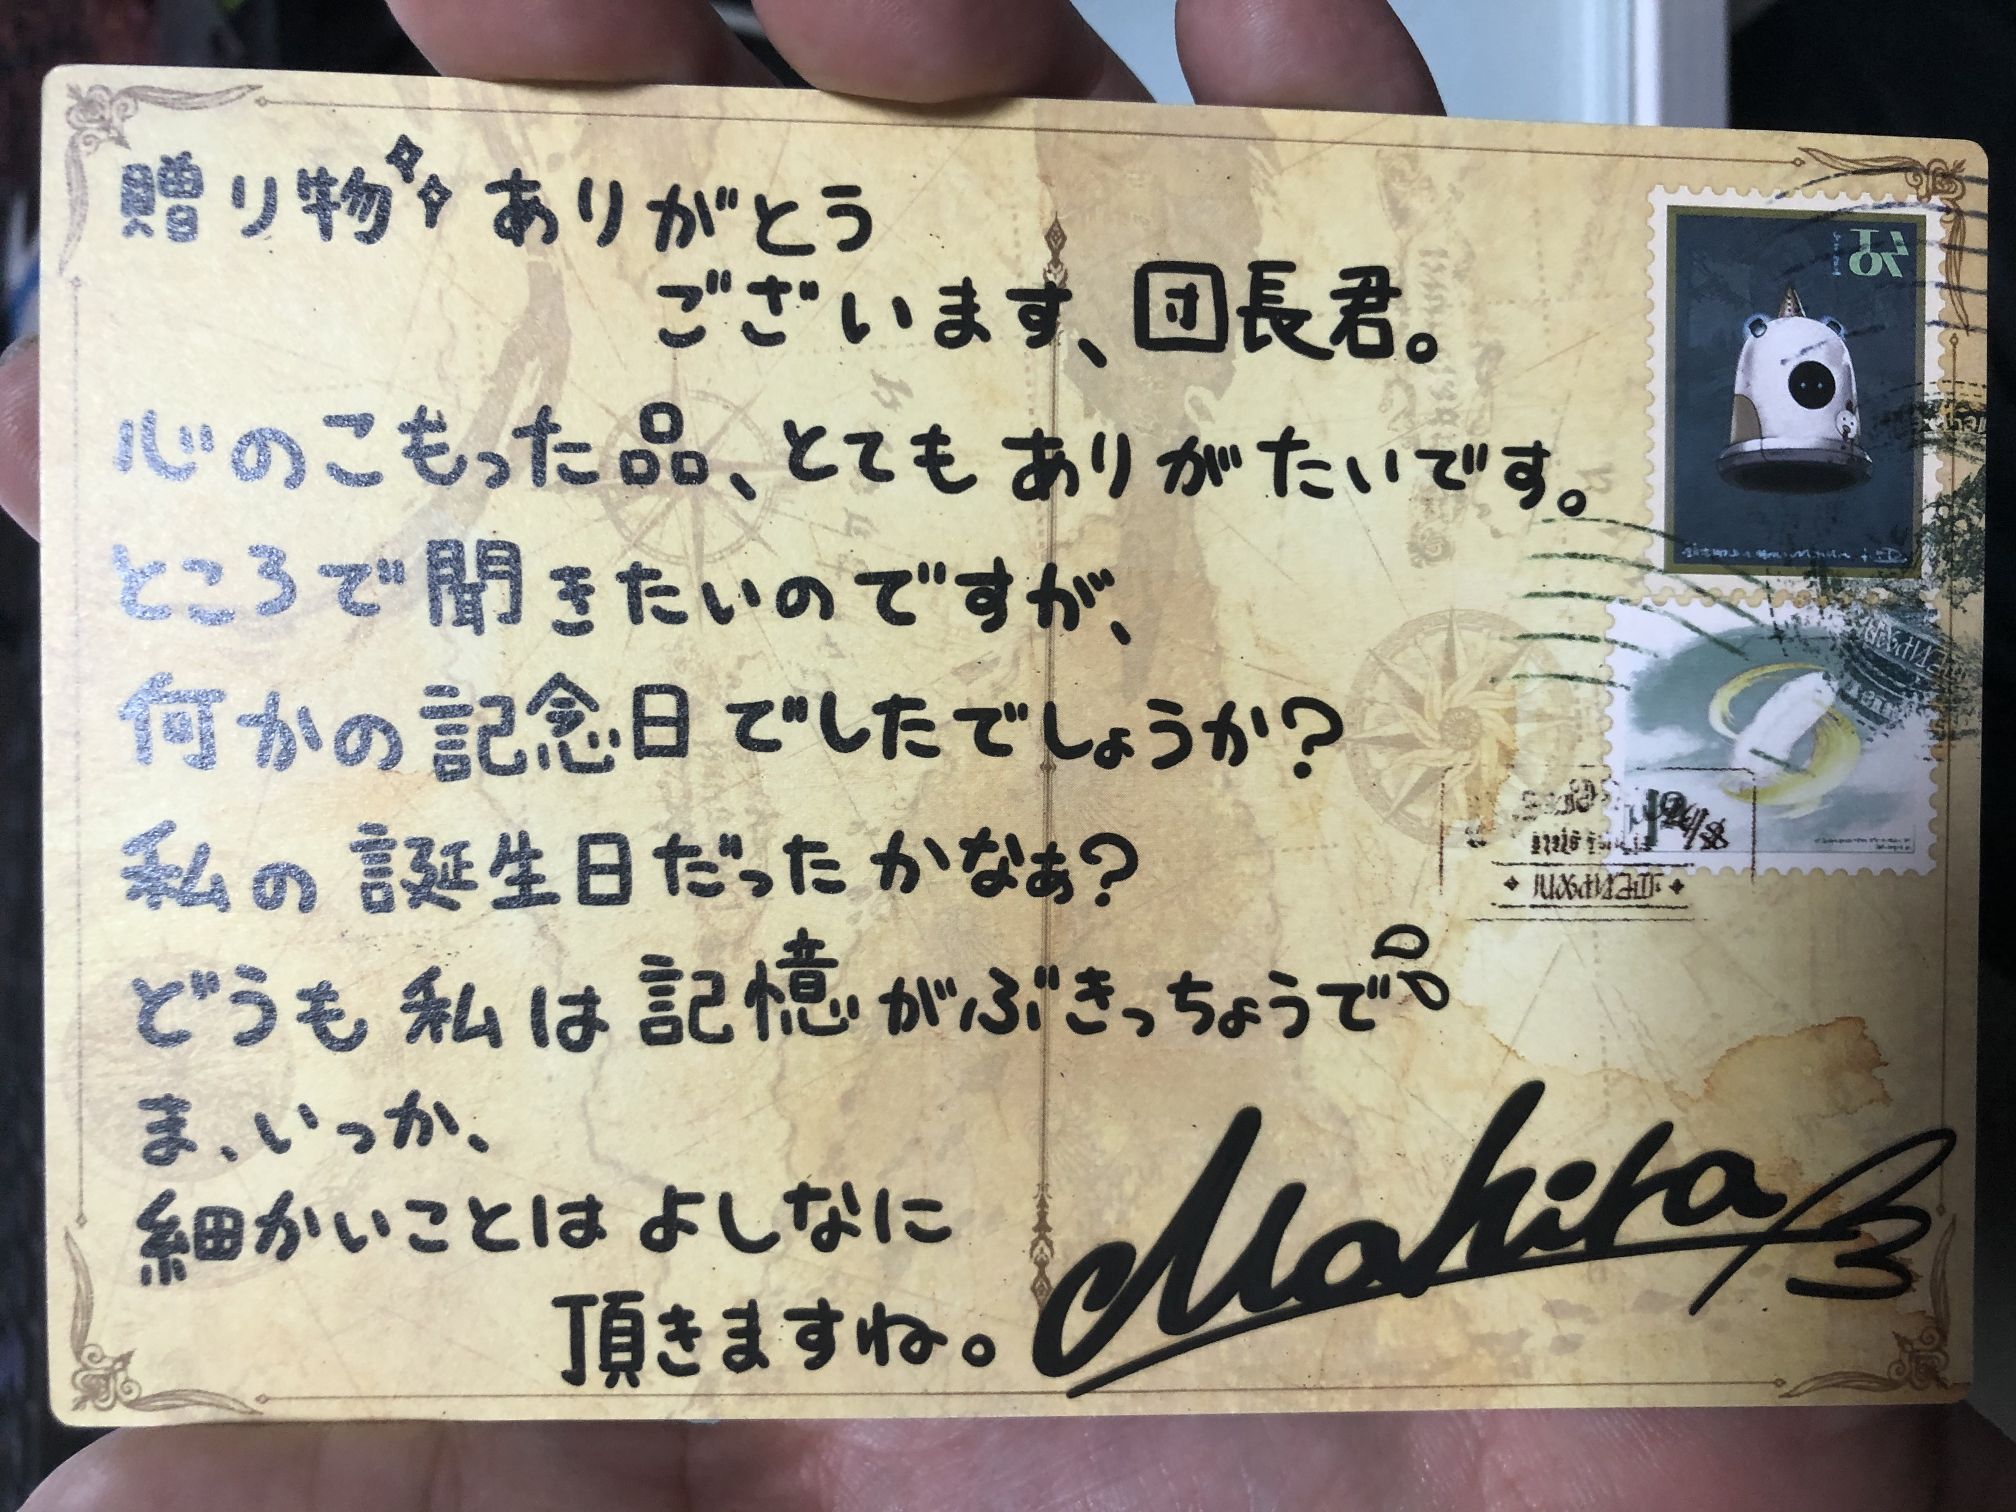 贈り物ありがとう
ございます、団長君。
心のこもった品、とてもありがたいです。
ところで聞きたいのですが、
何かの記念日でしたでしょうか?
私の誕生日だったかなぁ?
どうも私は記憶がぶきっちょうで
ま、いっか、
細かいことはよしなに
頂きますね。
Mahira